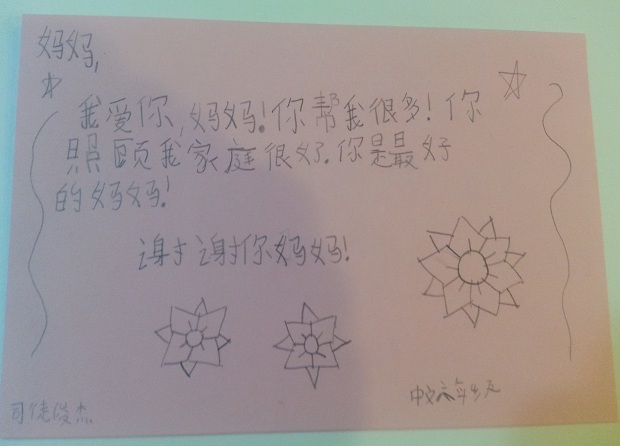 妈妈,
我爱你,妈妈!你帮我很多!你
照顾我家庭很好.你是最好
的妈妈!
谢谢你妈妈!
中文六年级
司徒俊杰